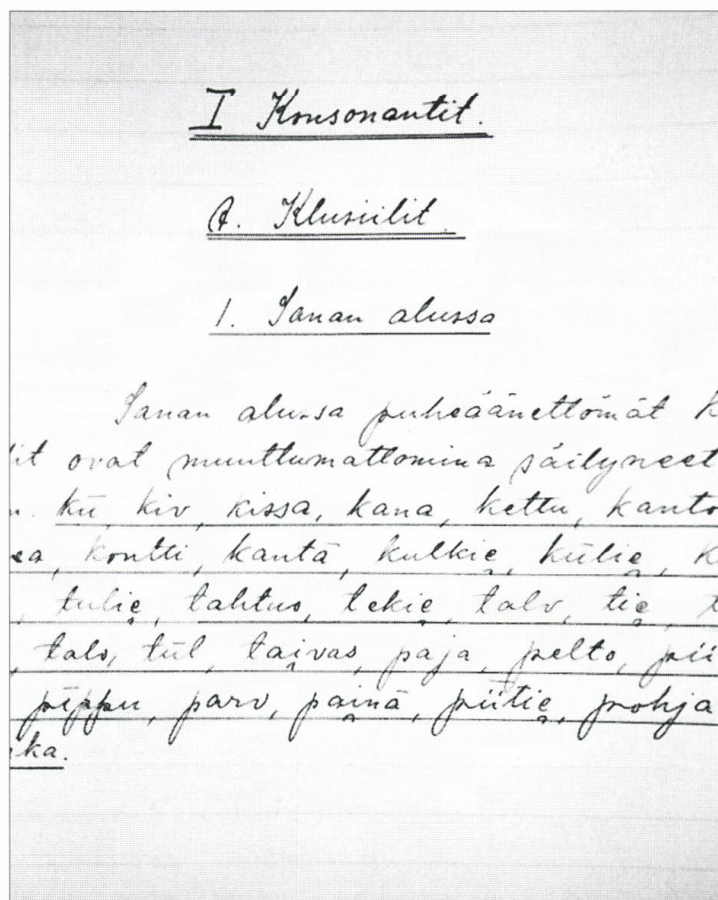 I Konsonantit.
A. Klusiilit.
1. Sanan alussa
Sanan alussa puheäänettömät k
it ovat muuttumattomina säilyneet
kū, kiv, kissa, kana, kettu, kanto
ea, kontti, kantā, kulkie̯, kūlie̯, k
, tulie̯, tahtuo, tekie̯, talv, tie̯, t
, talo, tūl, tai̯vas, paja, pelto, pii
pīppu, parv, pai̯nā, pūtie̯, pohja
ka.